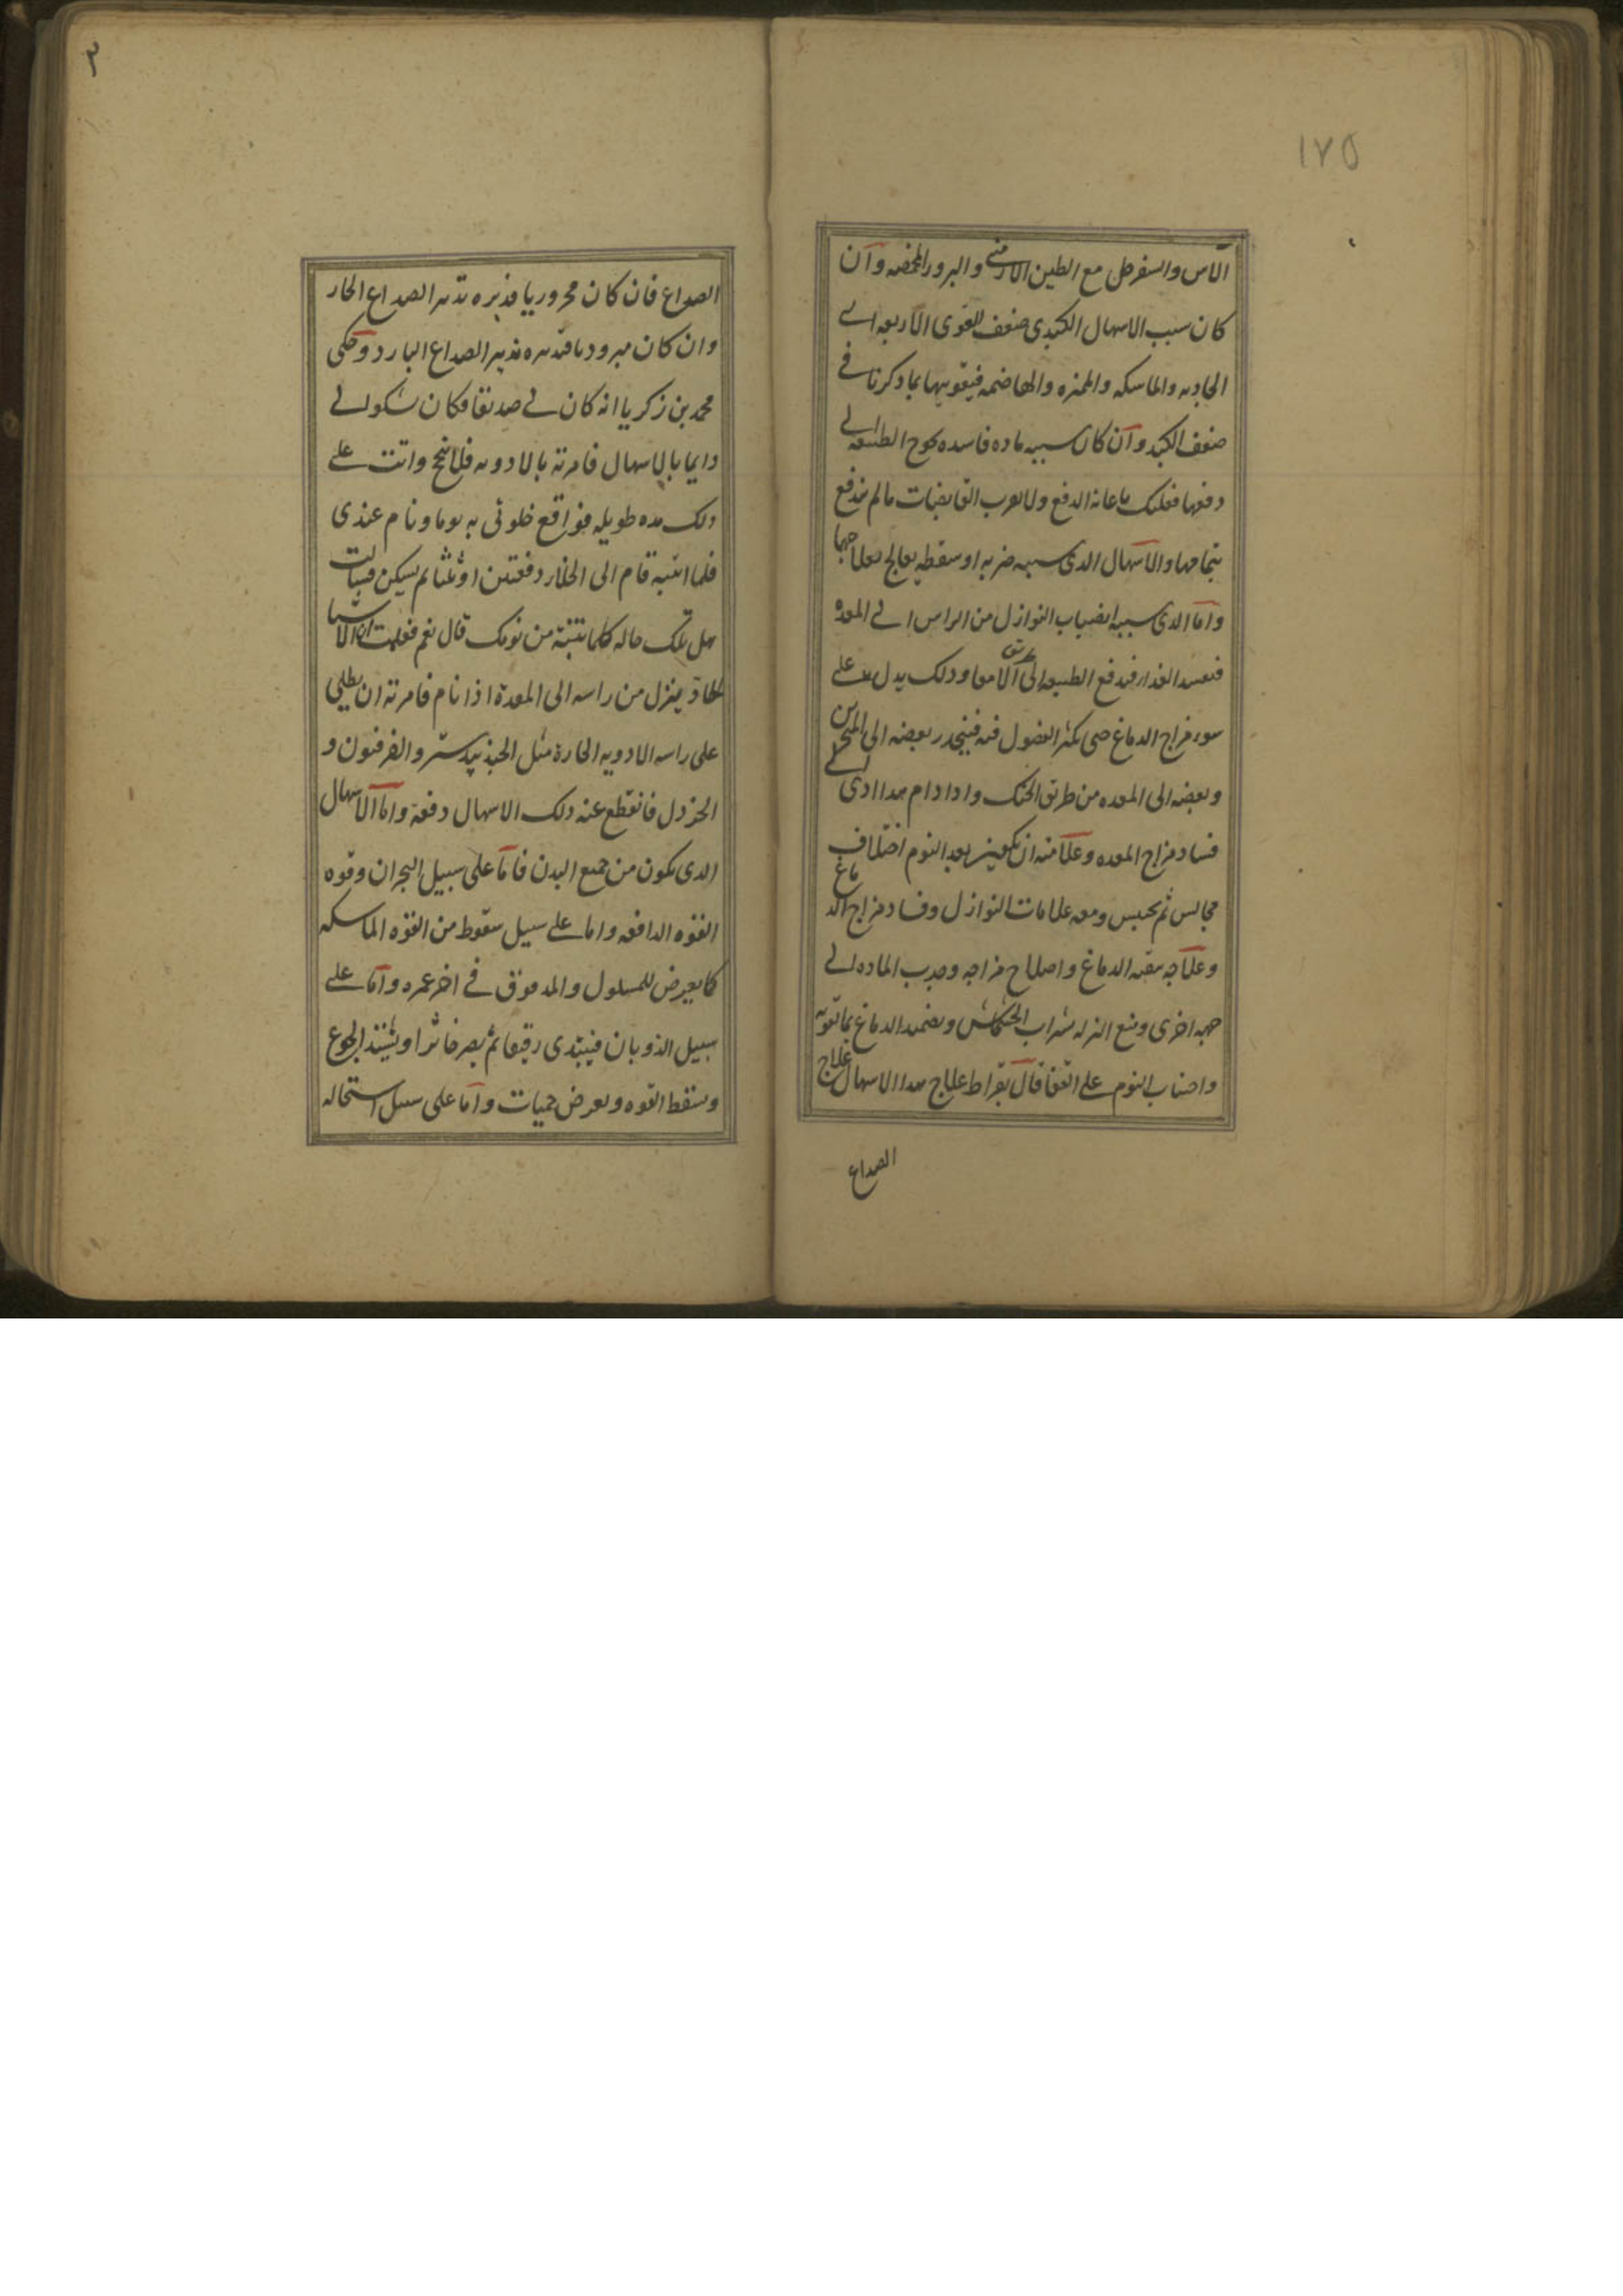 ١٧٥
الآس والسفرجل مع الطين الارمنى والبرور المحمصه وآن
كان سبب الاسهال الكبدى ضعف القوى الاربعه اى
الجاذبه والماسكه والمميزه والهاضمه فيقويها بما ذكرنا فى
ضعف الكبد وآن كان سببه ماده فاسده يحوج الطبيعه الى
دفعها فعليك باعانه الدفع ولا يعرب القابضات مالم يندفع
بتمامها والاسهال الذى سببه ضربه او سقطه يعالج بعلاجها
واما الذى سببه انصباب النوازل من الراس الى المعده
فتفسد الغذا فيدفع الطبيعه الى الامعا وذلك يدل على
سوء مزاج الدماغ حتى يكثر الفضول فيه فينحدر بعضه الى المنخرين
وبعضه الى المعده من طريق الحنك واذا دام هذا ادى الى
فساد مزاج المعده وعلامته ان يكون بعد النوم اختلاف
مجالس ثم يحبس ومعه علامات النوازل وفساد مزاج الدماغ
وعلاجه تنقيه الدماغ واصلاح مزاجه وجذب الماده الى
جهه اخرى ومنع النزله بشراب الخشخاش وتضميد الدماغ بما تقويه
واجتناب النوم على القفا قال بقراط علاج هذا الاسهال علاج
الصداع
٣
الصداع فان كان محروريا فدبره تدبير الصداع الحار
وان كان مبرودا فتدبيره تدبير الصداع البارد وحكى
محمد بن زكريا انه كان لى صديقا وكان يشكو الى
دايما بالاسهال فامرته بالادويه فلم ينجح واتت على
ذلك مده طويله فواقع خلوتى به يوما ونام عندى
فلما انتبه قام الى الخلا دفعتين او ثلثا لم يسكن فسالت
هل تلك حاله كلما تنتبه من نومك قال نعم فعلمت ان الاشيا
الحادّ ينزل من راسه الى المعدة اذا نام فامرته ان يطلى
على راسه الادويه الحارة مثل الجندبيدستر والفرفيون و
الخردل فانقطع عنه ذلك الاسهال دفعة واما الاسهال
الذى يكون من جميع البدن فاما على سبيل البحران وقوه
القوه الدافعه واما على سبيل سقوط من القوه الماسكه
كما يعرض للمسلول والمدقوق فى اخر عمره واما على
سبيل الذوبان فيبتدى رقيقا ثم يصير خاثرا ويشتد الجوع
وسقط القوه ويعرض حميات واما على سبيل استحاله